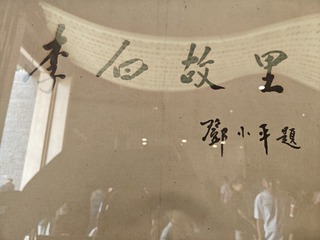 李白故里
鄧小平題